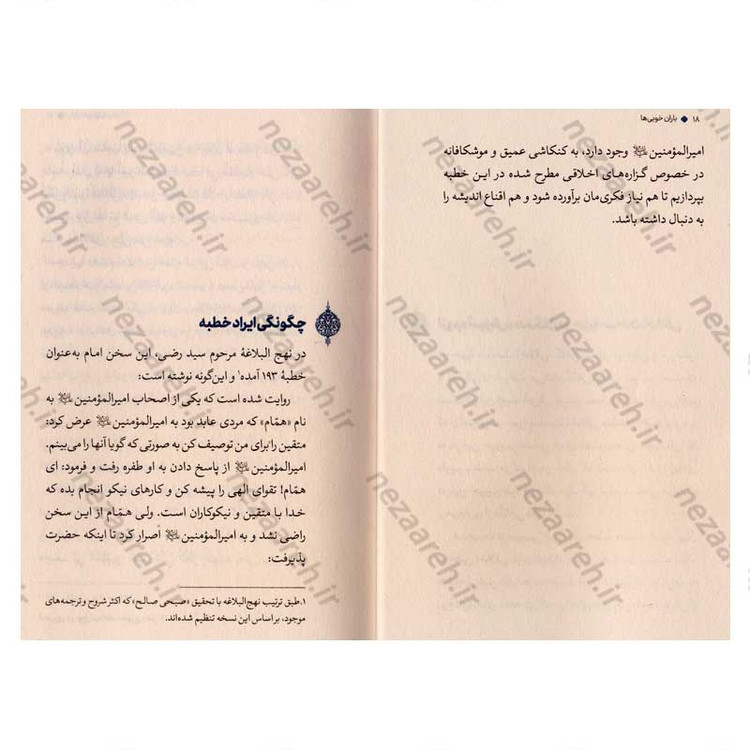 ۱۸ ● باران خوبی‌ها
امیرالمؤمنین ﷷ وجود دارد، به کنکاشی عمیق و موشکافانه
در خصوص گزاره‌های اخلاقی مطرح شده در این خطبه
بپردازیم تا هم نیاز فکری‌مان برآورده شود و هم اقناع اندیشه را
به دنبال داشته باشد.
چگونگی ایراد خطبه
در نهج البلاغهٔ مرحوم سید رضی، این سخن امام به‌عنوان
خطبهٔ ۱۹۳ آمده۱ و این‌گونه نوشته است:
روایت شده است که یکی از اصحاب امیرالمؤمنین به
نام «همّام» که مردی عابد بود به امیرالمؤمنین عرض کرد:
متقین را برای من توصیف کن به صورتی که گویا آنها را می‌بینم.
امیرالمؤمنین از پاسخ دادن به او طفره رفت و فرمود: ای
همّام! تقوای الهی را پیشه کن و کارهای نیکو انجام بده که
خدا با متقین و نیکوکاران است. ولی همّام از این سخن
راضی نشد و به امیرالمؤمنین اصرار کرد تا اینکه حضرت
پذیرفت:
۱. طبق ترتیب نهج‌البلاغه با تحقیق «صبحی صالح» که اکثر شروح و ترجمه‌های
موجود، براساس این نسخه تنظیم شده‌اند.
nezaareh.ir
nezaareh.ir
nezaareh.ir
nezaareh.ir
nezaareh.ir
nezaareh.ir
nezaareh.ir
nezaareh.ir